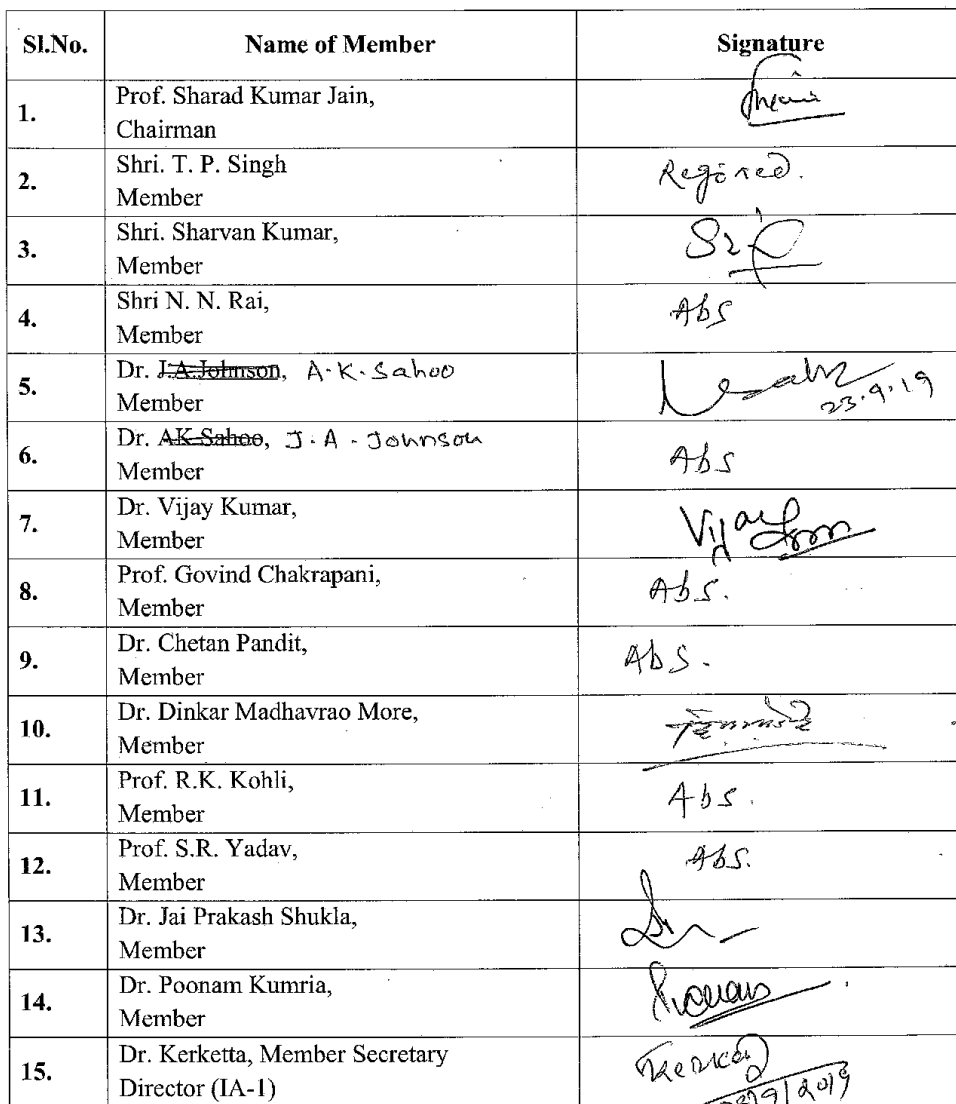 Sl.No. Name of Member Signature
1. Prof. Sharad Kumar Jain,
Chairman
2. Shri. T. P. Singh Regined.
Member
3. Shri. Sharvan Kumar,
Member
4. Shri N. N. Rai, Abs
Member
5. Dr. J.A.Johnson, A.K.Sahoo
Member 23.9.19
6. Dr. AK Sahoo, J.A.Johnson Abs
Member
7. Dr. Vijay Kumar, Vijay
Member
8. Prof. Govind Chakrapani, Abs.
Member
9. Dr. Chetan Pandit, Abs.
Member
10. Dr. Dinkar Madhavrao More,
Member
11. Prof. R.K. Kohli, Abs.
Member
12. Prof. S.R. Yadav, Abs.
Member
13. Dr. Jai Prakash Shukla,
Member
14. Dr. Poonam Kumria,
Member
15. Dr. Kerketta, Member Secretary
Director (IA-1)